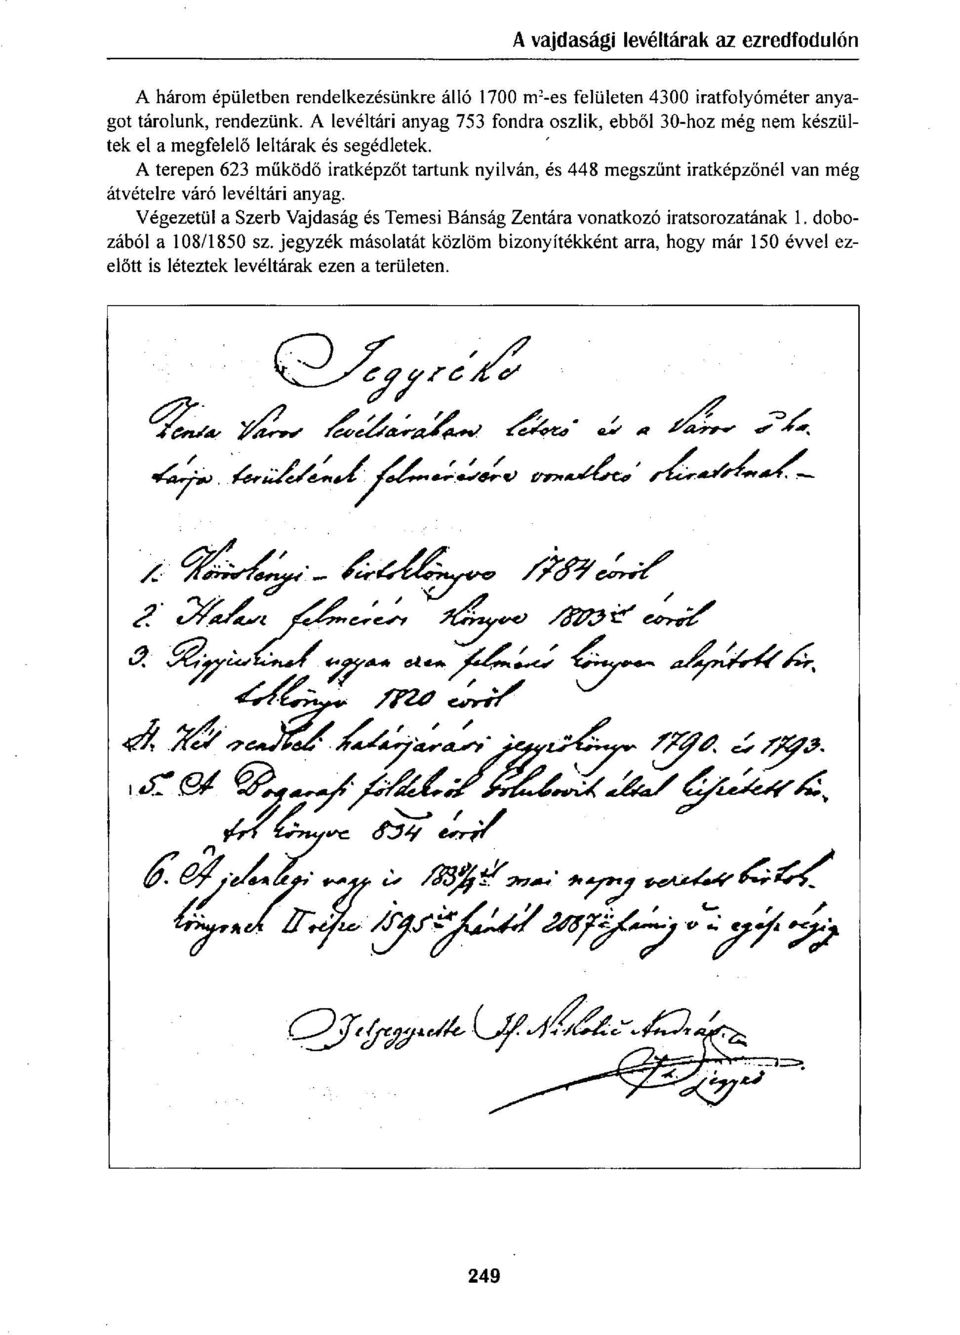 A vajdasági levéltárak az ezredfodulón
A három épületben rendelkezésünkre álló 1700 m²-es felületen 4300 iratfolyóméter anya-
got tárolunk, rendezünk. A levéltári anyag 753 fondra oszlik, ebből 30-hoz még nem készül-
tek el a megfelelő leltárak és segédletek.
A terepen 623 működő iratképzőt tartunk nyilván, és 448 megszűnt iratképzőnél van még
átvételre váró levéltári anyag.
Végezetül a Szerb Vajdaság és Temesi Bánság Zentára vonatkozó iratsorozatának 1. dobo-
zából a 108/1850 sz. jegyzék másolatát közlöm bizonyítékként arra, hogy már 150 évvel ez-
előtt is léteztek levéltárak ezen a területen.
Jegyzéke
Zenta Város levéltárában létező és a Város s ha-
tárja területének felmérésére vonatkozó okiratoknak. –
1. Körös – birtokkönyve 1784 évről
2. felmérési könyve 1803ik évről
3. ugyan ezen felmérési könyven alapított bir-
tokkönyv 1820 évről
4. Két rendbeli határjárási jegyzőkönyv 1790. és 1793.
5. A Bogarasi földekről által készített bir-
tok könyve 834 évről
6. A jelenlegi vagy is mai napig vezetett birtok-
könyvnek II része 1595ik számtól 2087ik számig s egész végig
Feljegyzette Nikolić András
jegyző
249